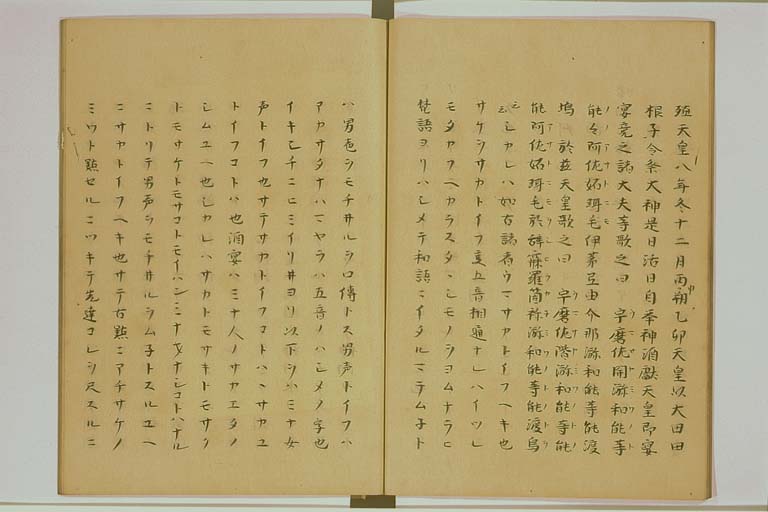 殖天皇八年冬十二月丙朔乙卯天皇以大田田
根子令祭大神是日活日自奉神酒獻天皇即宴
宴竟之諸大夫等歌之曰 宇磨佐開瀰和能等
能々阿佐妬珥毛伊弟氐由介那瀰和能等能渡
塢 於茲天皇歌之曰 宇磨佐階瀰和能等能
能阿佐妬珥毛於辞寐羅箇祢瀰和能等能渡烏
シカレハ如古語者ウマサカトイフヘキ也
サケシサカトイフ支五音相通ナレハイツレ
モタカフヘカラスタヽシモノヲヨムナラヒ
梵語ヨリハシメテ和語ニイタルマテム子ト
ハ男声ヲモチ井ルヲロ傳トス男声トイフハ
アカサタナハマヤラハ五音ノハシメノ字也
イキシチニヒミイリ井ヨリ以下シハミナ女
声トイフ也サテサカトイフコトハヽサカユ
トイフコトハ也酒宴ハミナ人ノサカエタノ
シムユヘ也シカレハサカトモサキトモサク
トモサケトモサコトモイハンミナヲナシコトハナル
ニトリテ男声ヲモチ井ルラム子トスルユヘ
ニサカトイフヘキ也サテ古點ニアチサケノ
ミワト點セルニツキテ先達コレシ尺スルニ